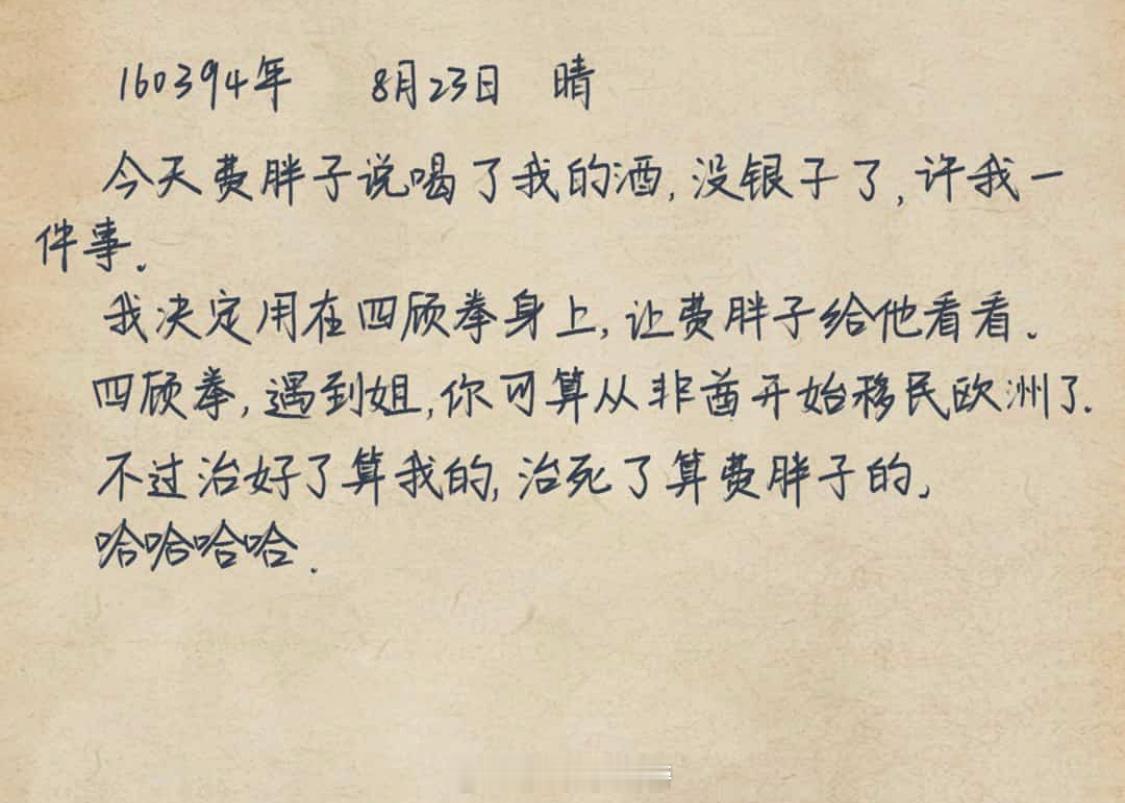 160394年 8月23日 晴
今天费胖子说喝了我的酒,没银子了,许我一
件事.
我决定用在四顾拳身上,让费胖子给他看看.
四顾拳,遇到姐,你可算从非酋开始移民欧洲了.
不过治好了算我的,治死了算费胖子的,
哈哈哈哈.